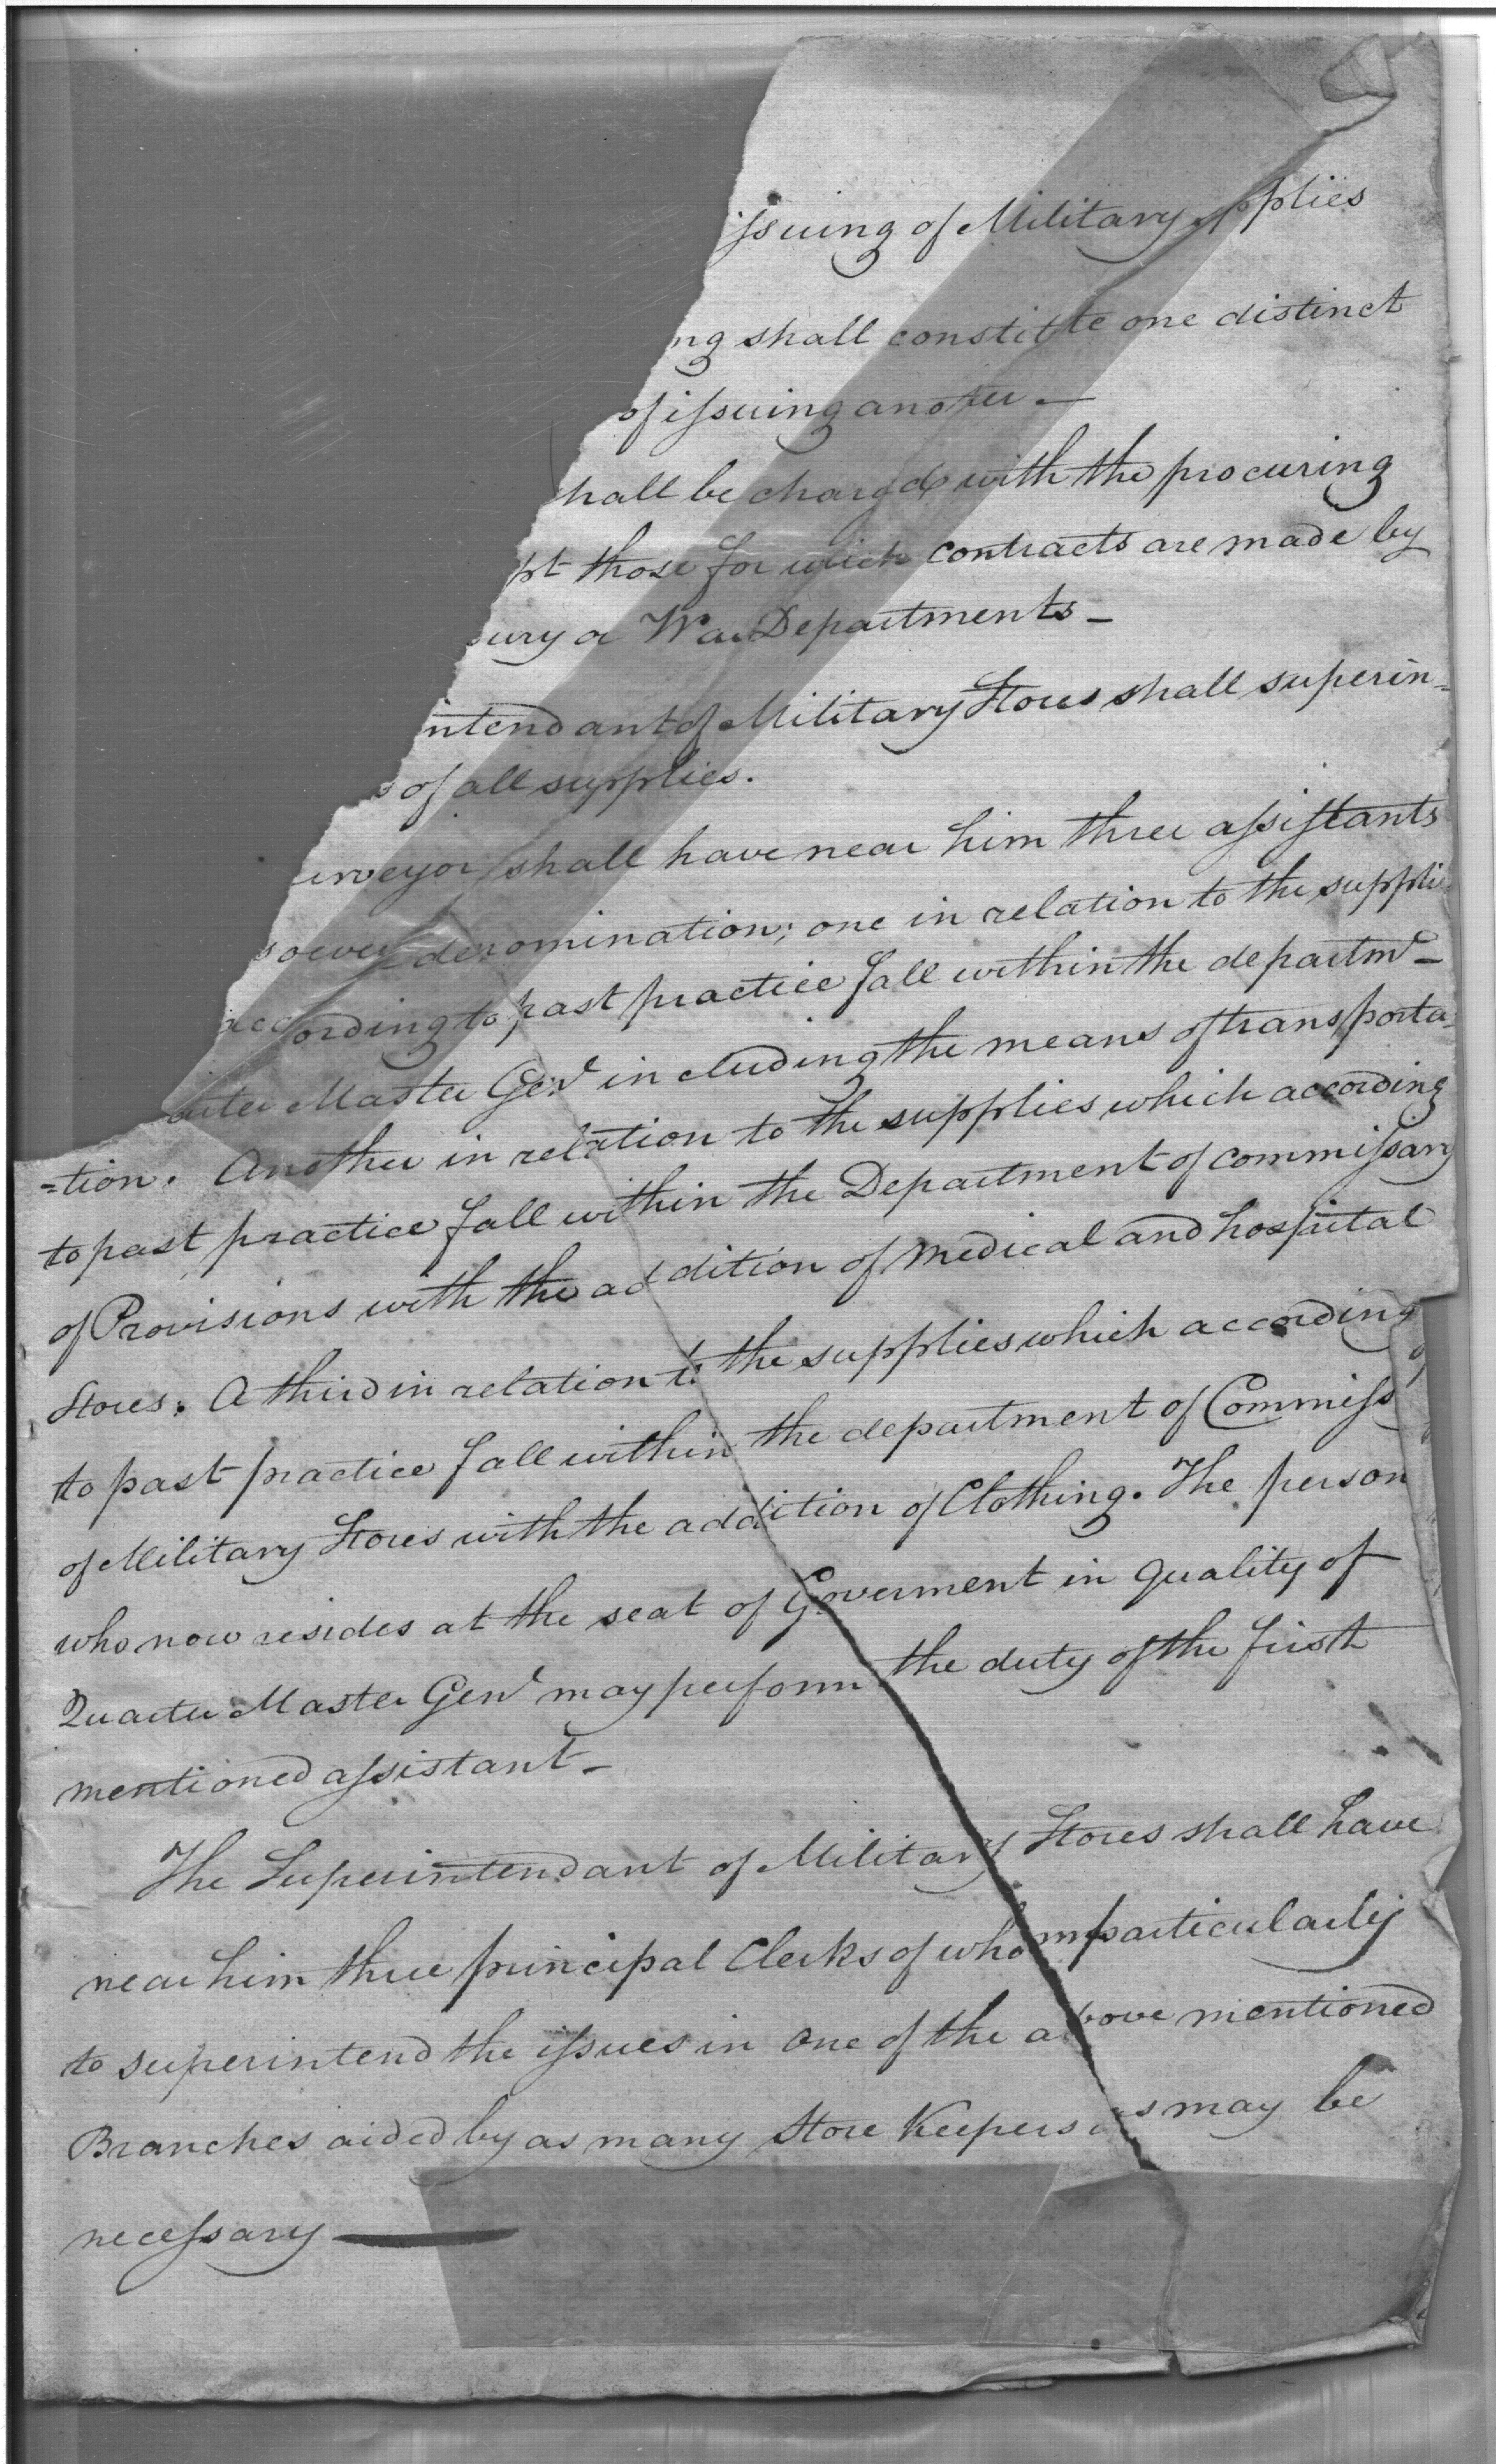 issuing of Military supplies
ng shall constitute one distinct
of issuing another —
hall be charged with the procuring
pt those for which contracts are made by
sury or War Departments —
ntendant of Military Stores shall superin-
s of all supplies.
urveyor shall have near him three assistants
soever denomination; one in relation to the supplie
according to past practice fall within the departmt —
arter Master Genl including the means of transporta-
=tion. Another in relation to the supplies which according
to past practice fall within the Department of commissary
of Provisions with the addition of medical and hospital
Stores. A third in relation to the supplies which according
to past practice fall within the department of Commiss
of Military Stores with the addition of Clothing. The person
who now resides at the seat of Goverment in quality of
Quarter Master Genl may perform the duty of the first
mentioned assistant —
The Superintendant of Military Stores shall have
near him three principal Clerks of whom particularly
to superintend the issues in one of the above mentioned
Branches aided by as many Store Keepers as may be
necessary —